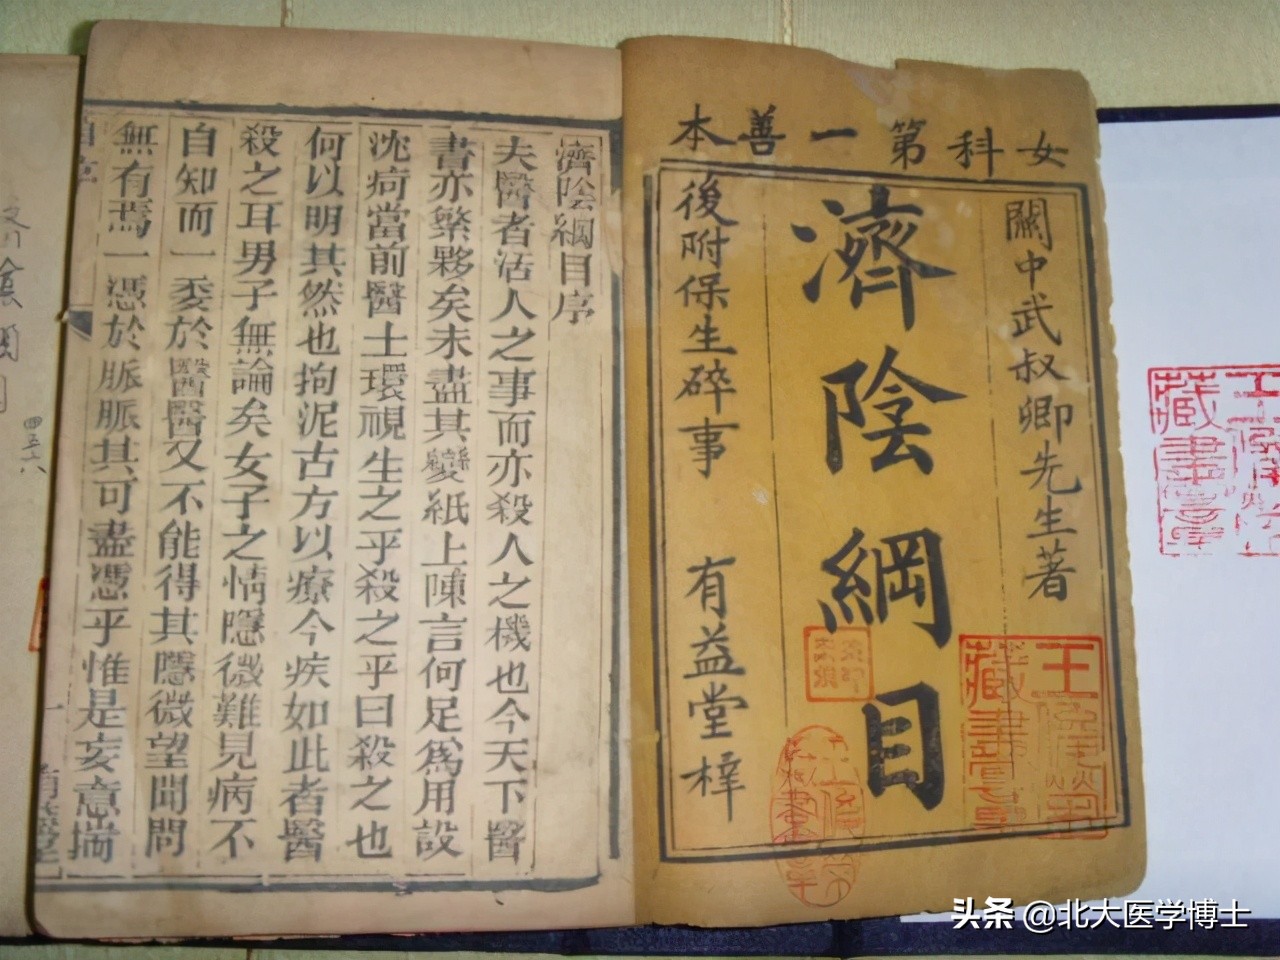 女科第一善本
關中武叔卿先生著
濟陰綱目
後附保生碎事 有益堂梓
濟陰綱目序
夫醫者活人之事而亦殺人之機也今天下醫
書亦繁夥矣未盡其變紙上陳言何足爲用設
沈疴當前醫士環視生之乎殺之乎曰殺之也
何以明其然也拘泥古方以療今疾如此者醫
殺之耳男子無論矣女子之情隱微難見病不
自知而一委於醫醫又不能得其隱微望聞問
無有焉一憑於脈脈其可盡憑乎惟是妄意揣
四五六
王
藏書
頭条 @北大医学博士